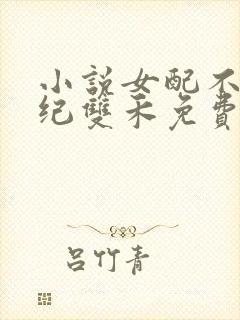 小說女配不
紀雙禾免費
呂竹青